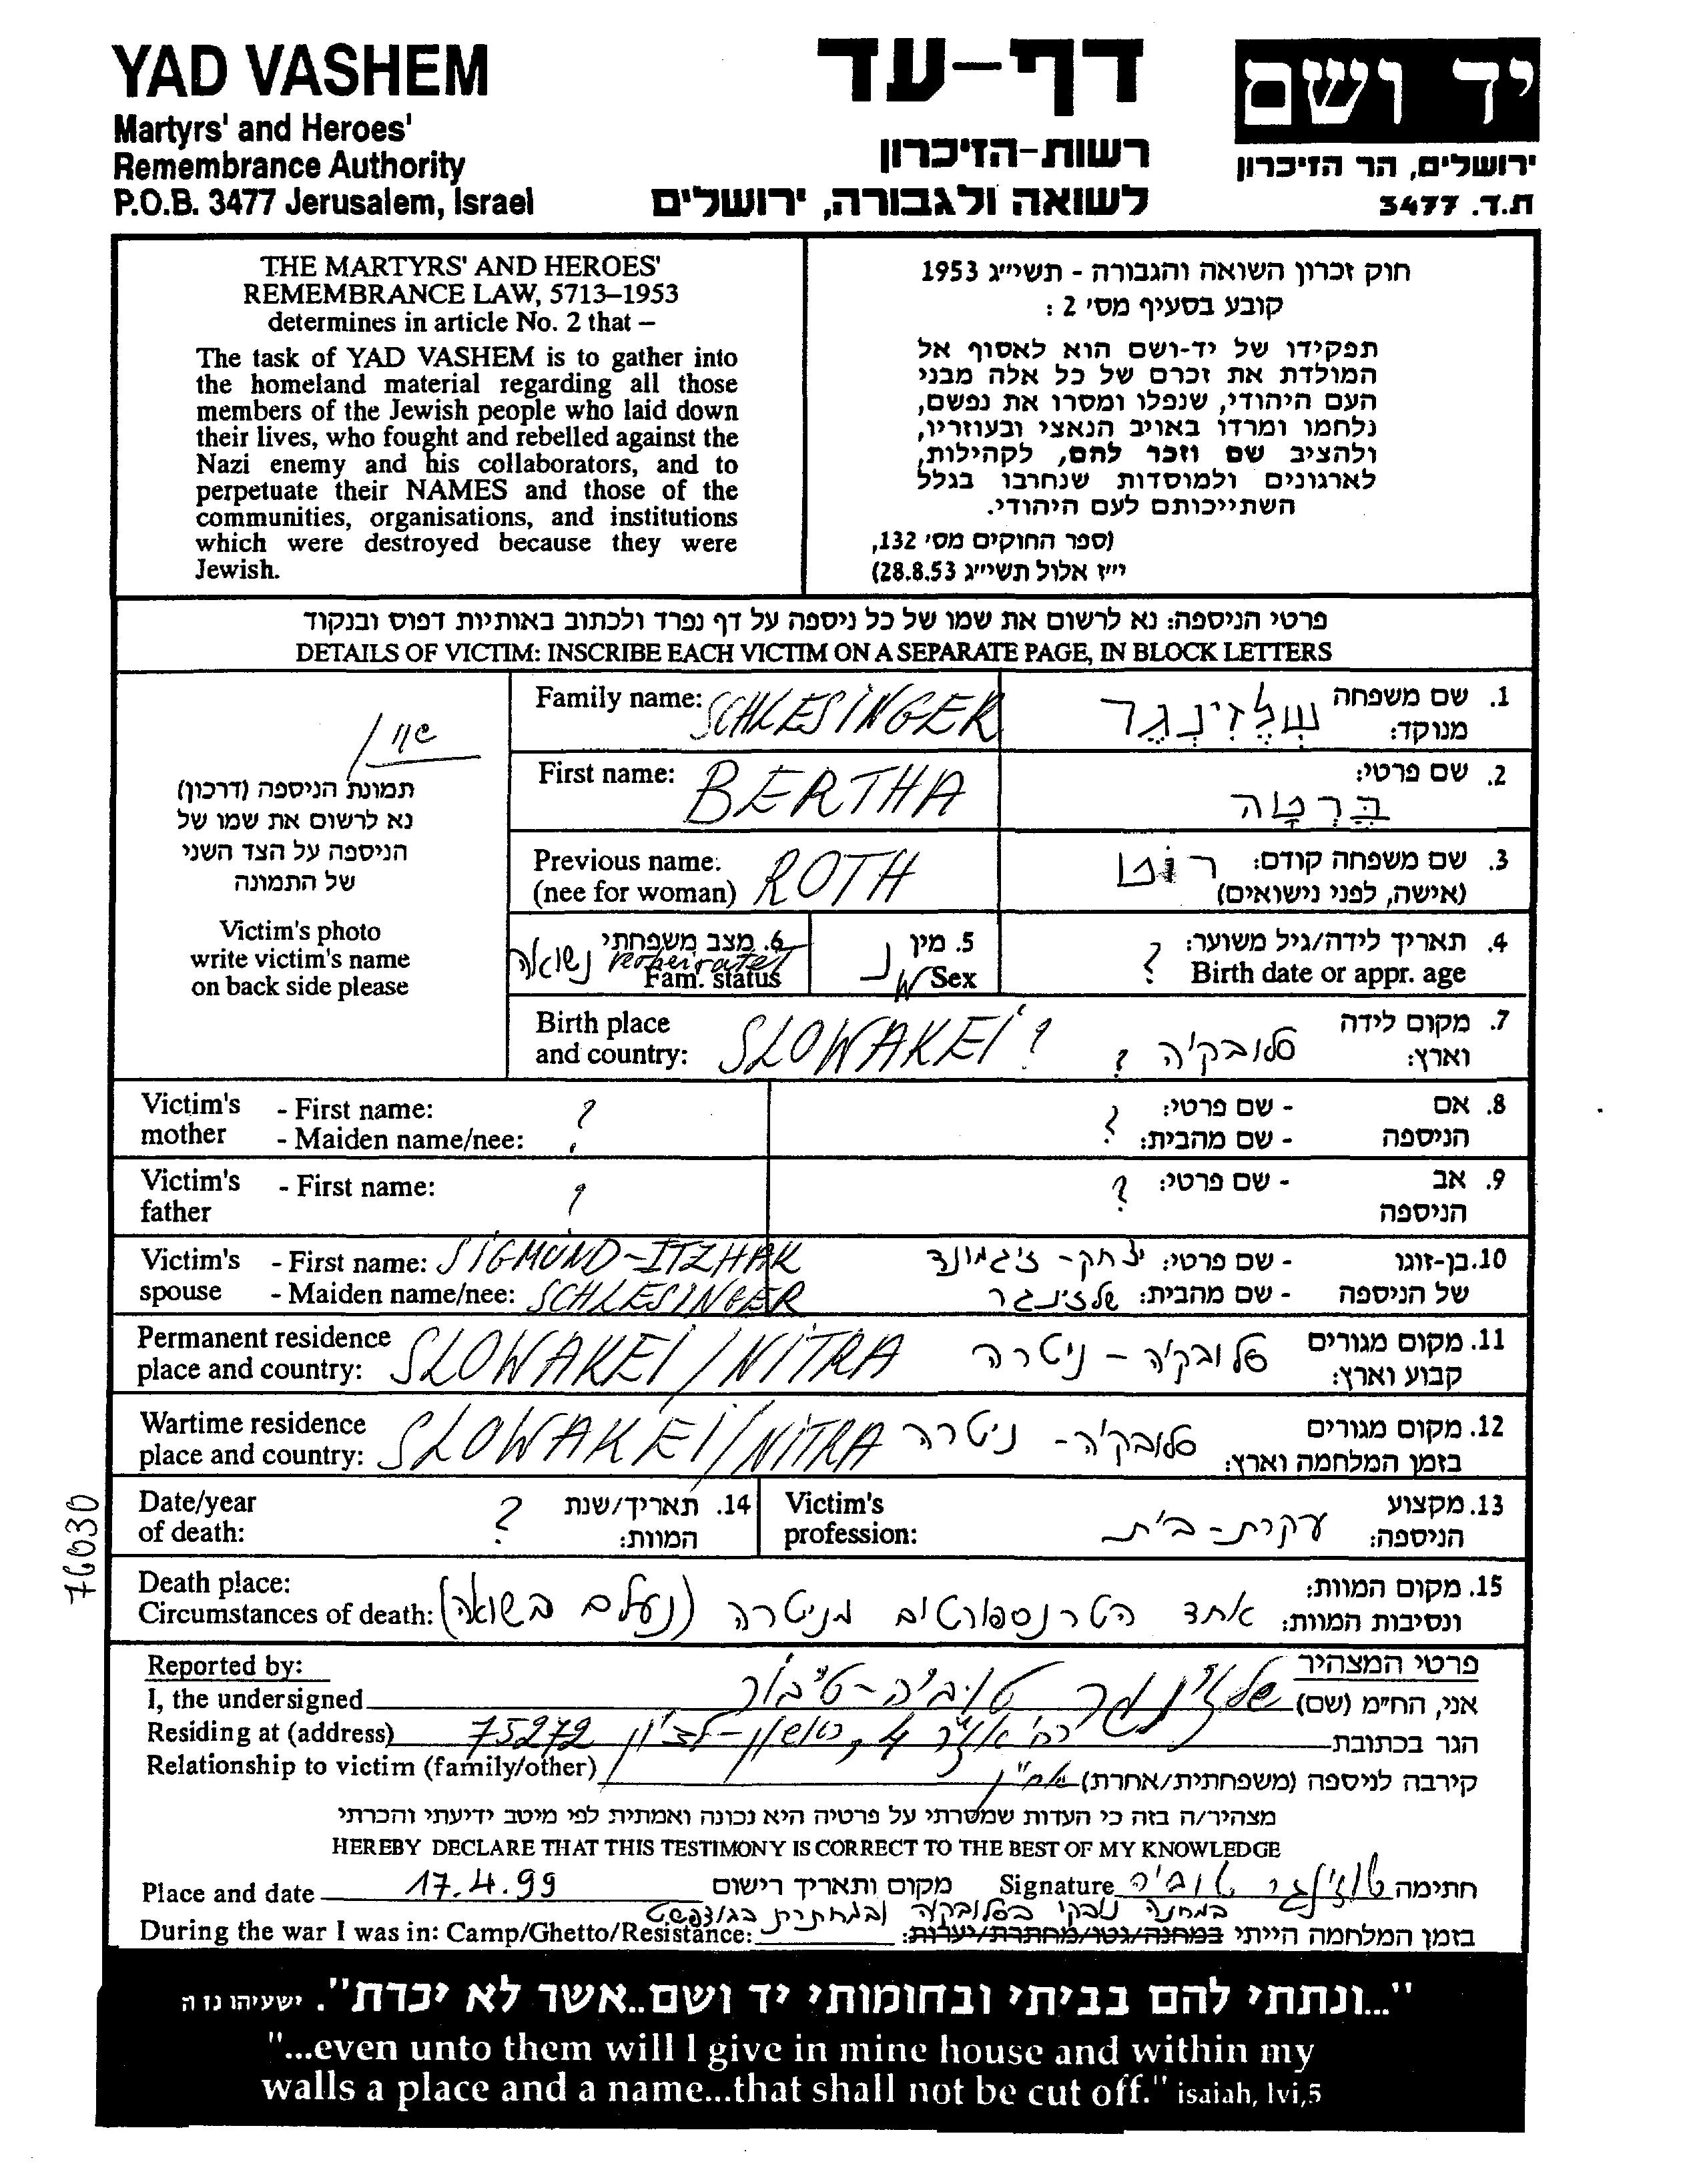 YAD VASHEM
Martyrs' and Heroes'
Remembrance Authority
P.O.B. 3477 Jerusalem, Israel
דף-עד
רשות-הזיכרון
לשואה ולגבורה, ירושלים
יד ושם
ירושלים, הר הזיכרון
ת.ד. 3477
THE MARTYRS' AND HEROES'
REMEMBRANCE LAW, 5713–1953
determines in article No. 2 that –
The task of YAD VASHEM is to gather into
the homeland material regarding all those
members of the Jewish people who laid down
their lives, who fought and rebelled against the
Nazi enemy and his collaborators, and to
perpetuate their NAMES and those of the
communities, organisations, and institutions
which were destroyed because they were
Jewish.
חוק זכרון השואה והגבורה - תשי"ג 1953
קובע בסעיף מס' 2 :
תפקידו של יד-ושם הוא לאסוף אל
המולדת את זכרם של כל אלה מבני
העם היהודי, שנפלו ומסרו את נפשם,
נלחמו ומרדו באויב הנאצי ובעוזריו,
ולהציב שם וזכר להם, לקהילות,
לארגונים ולמוסדות שנחרבו בגלל
השתייכותם לעם היהודי.
(ספר החוקים מס' 132,
י"ז אלול תשי"ג 28.8.53)
פרטי הניספה: נא לרשום את שמו של כל ניספה על דף נפרד ולכתוב באותיות דפוס ובנקוד
DETAILS OF VICTIM: INSCRIBE EACH VICTIM ON A SEPARATE PAGE, IN BLOCK LETTERS
תמונת הניספה (דרכון)
נא לרשום את שמו של
הניספה על הצד השני
של התמונה
Victim's photo
write victim's name
on back side please
Family name: SCHLESINGER
1. שם משפחה מנוקד: שְלֶזִינְגֶר
First name: BERTHA
2. שם פרטי: בֶּרְטָה
Previous name: (nee for woman) ROTH
3. שם משפחה קודם: (אישה, לפני נישואים) רוט
6. מצב משפחתי Fam. status נשואה verheiratet
5. מין Sex נ W
4. תאריך לידה/גיל משוער: Birth date or appr. age ?
Birth place and country: SLOWAKEI ?
7. מקום לידה וארץ: סלובקיה ?
Victim's mother - First name: - Maiden name/nee: ?
8. אם הניספה - שם פרטי: - שם מהבית: ?
Victim's father - First name: ?
9. אב הניספה - שם פרטי: ?
Victim's spouse - First name: SIGMUND-ITZHAK
- Maiden name/nee: SCHLESINGER
10. בן-זוגו של הניספה - שם פרטי: יצחק - זיגמונד
- שם מהבית: שלזינגר
Permanent residence place and country: SLOWAKEI/NITRA
11. מקום מגורים קבוע וארץ: סלובקיה - ניטרה
Wartime residence place and country: SLOWAKEI/NITRA
12. מקום מגורים בזמן המלחמה וארץ: סלובקיה - ניטרה
Date/year of death: ?
14. תאריך/שנת המוות:
Victim's profession:
13. מקצוע הניספה: עקרת-בית
Death place:
Circumstances of death:
15. מקום המוות: ונסיבות המוות: אחד הטרנספורטים מניטרה (נעלם בשואה)
76030
Reported by:
פרטי המצהיר
I, the undersigned
אני, הח"מ (שם) שלזינגר טוביה-טיבור
Residing at (address)
הגר בכתובת 4, ראשון-לציון 75272
Relationship to victim (family/other)
קירבה לניספה (משפחתית/אחרת)
מצהיר/ה בזה כי העדות שמסרתי על פרטיה היא נכונה ואמתית לפי מיטב ידיעתי והכרתי
HEREBY DECLARE THAT THIS TESTIMONY IS CORRECT TO THE BEST OF MY KNOWLEDGE
Place and date 17.4.99 מקום ותאריך רישום
Signature שלזינגר טוביה חתימה
במחנה נובקי בסלובקיה ובמחתרת בבודפשט
During the war I was in: Camp/Ghetto/Resistance:
בזמן המלחמה הייתי במחנה/גטו/מחתרת/יערות:
"...ונתתי להם בביתי ובחומותי יד ושם..אשר לא יכרת". ישעיהו נו ה
"...even unto them will I give in mine house and within my
walls a place and a name...that shall not be cut off." isaiah, lvi,5